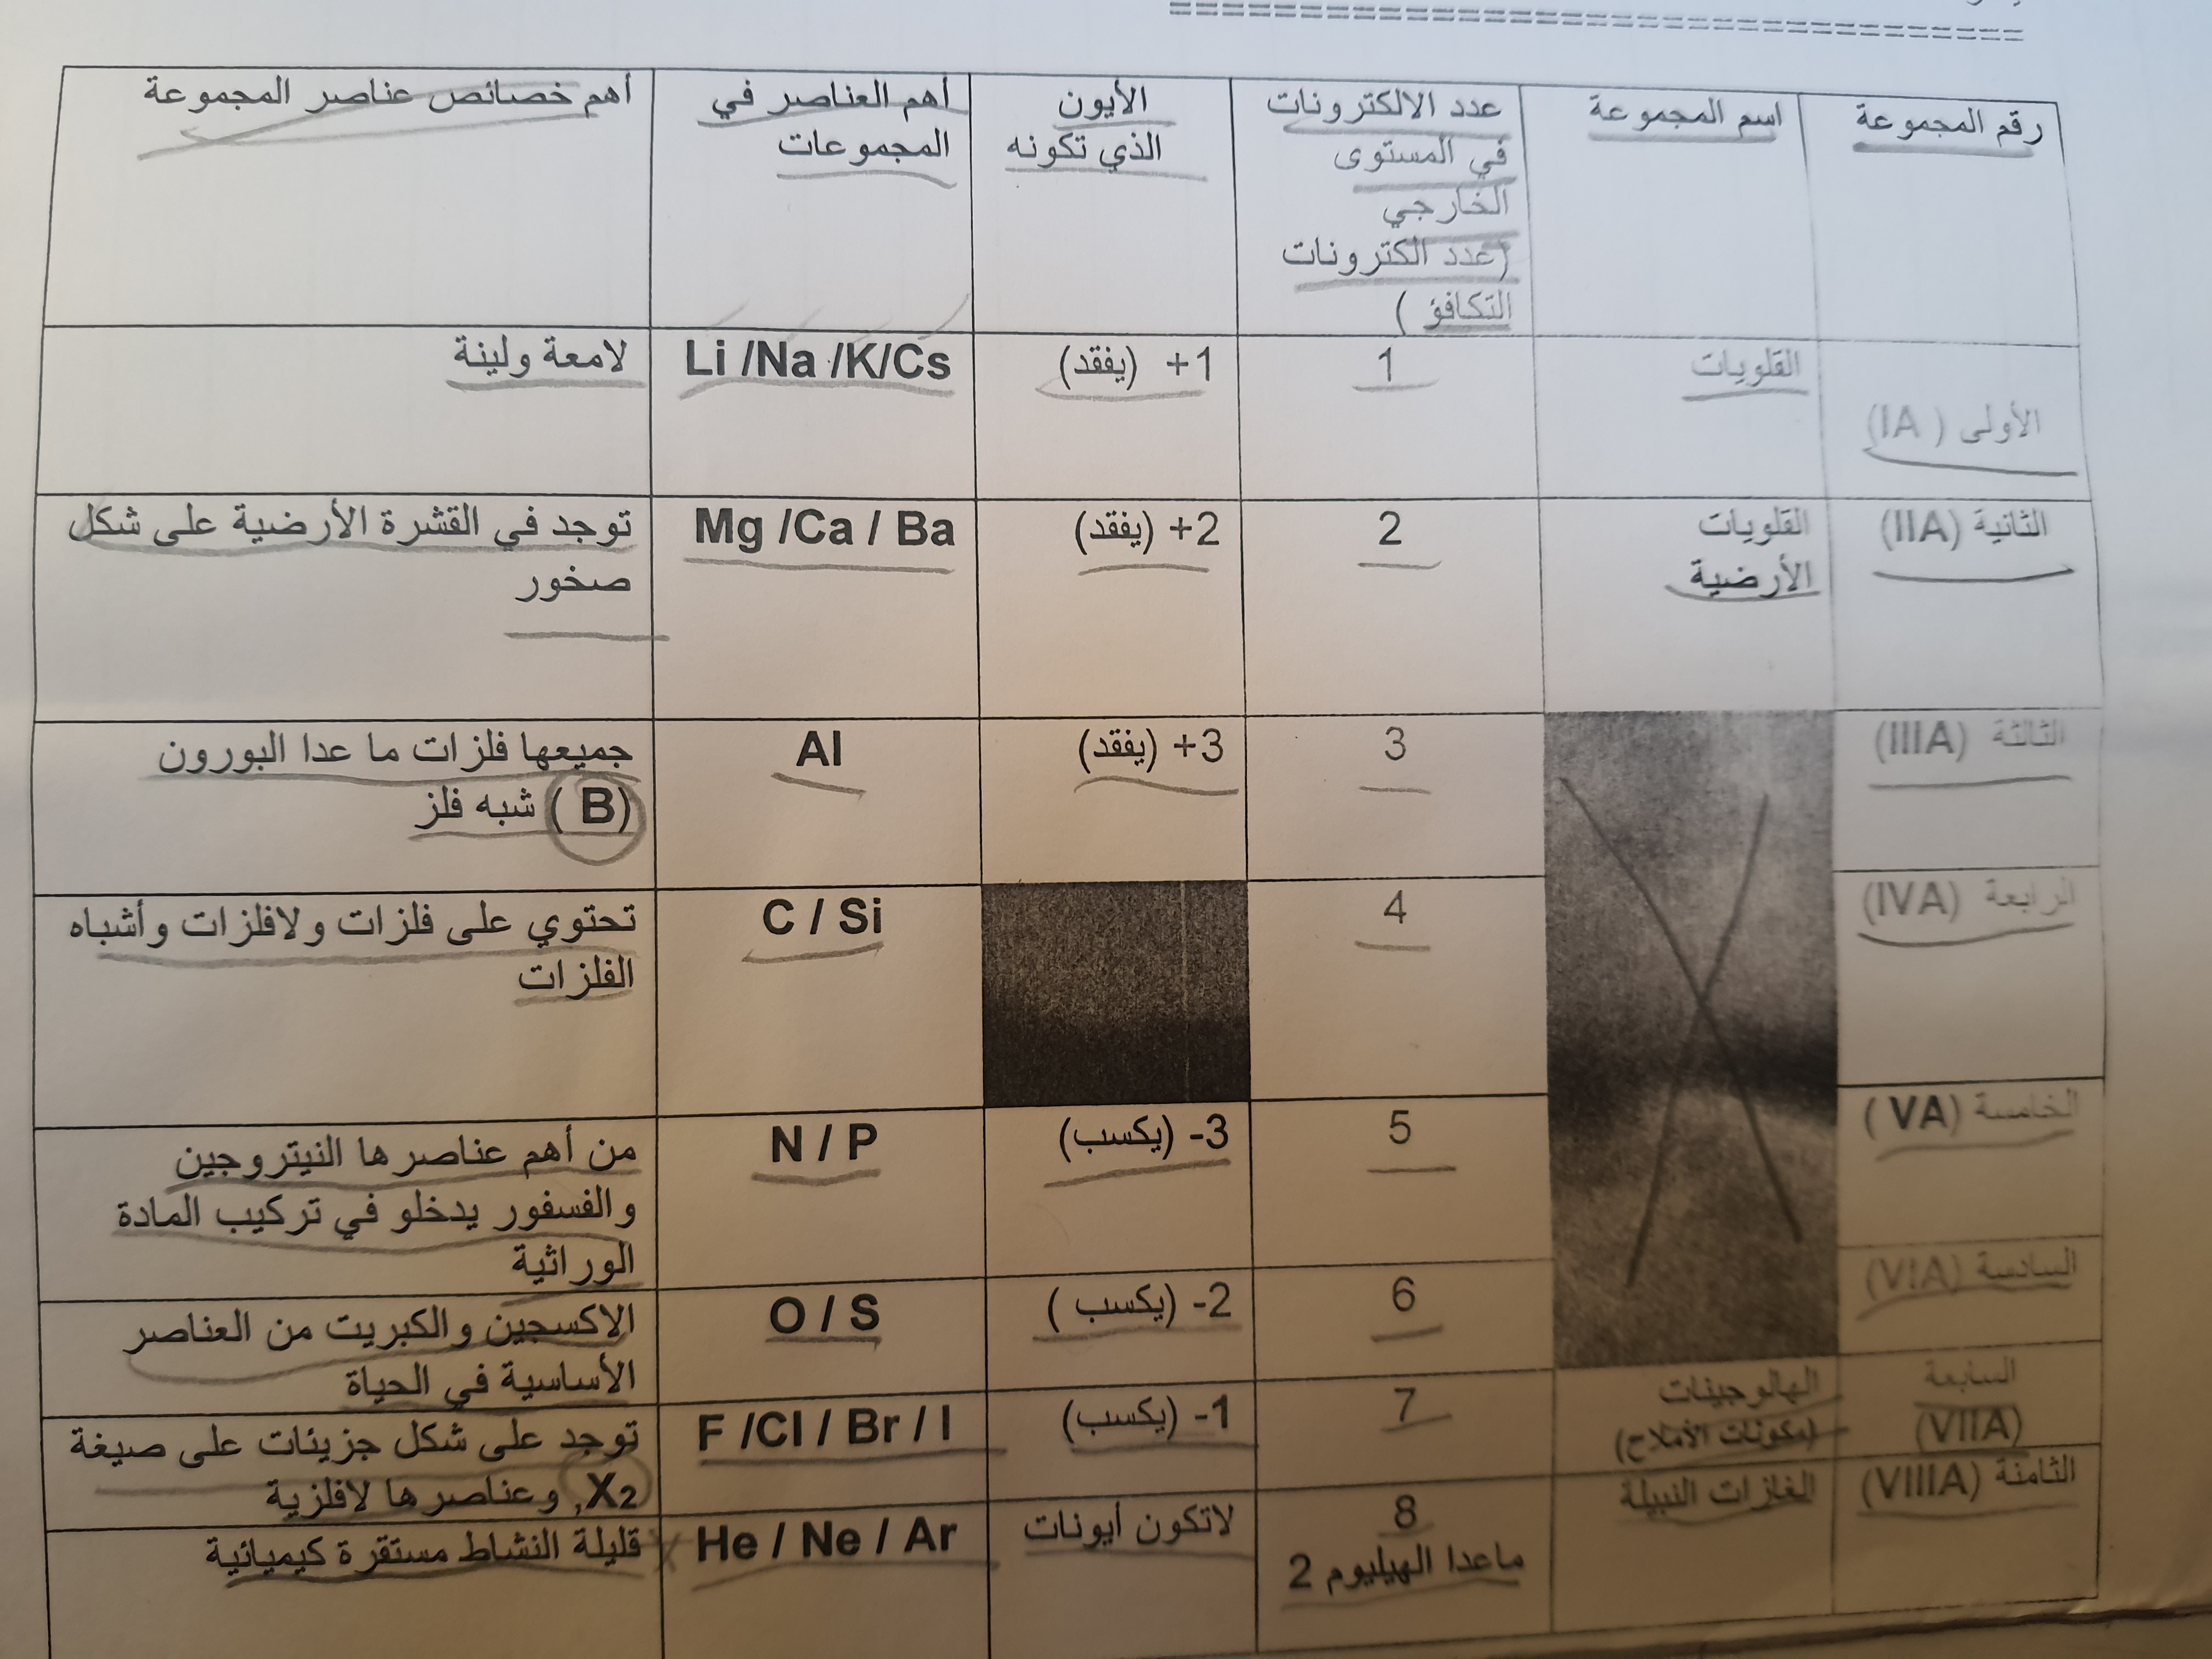 رقم المجموعة
اسم المجموعة
عدد الالكترونات
في المستوى
الخارجي
(عدد الكترونات
التكافؤ )
الأيون
الذي تكونه
أهم العناصر في
المجموعات
أهم خصائص عناصر المجموعة
الأولى ( IA)
القلويات
1
+1 (يفقد)
Li /Na /K/Cs
لامعة ولينة
الثانية (IIA)
القلويات
الأرضية
2
+2 (يفقد)
Mg /Ca / Ba
توجد في القشرة الأرضية على شكل
صخور
الثالثة (IIIA)
3
+3 (يفقد)
Al
جميعها فلزات ما عدا البورون
(B ) شبه فلز
الرابعة (IVA)
4
C / Si
تحتوي على فلزات ولافلزات وأشباه
الفلزات
الخامسة (VA )
5
-3 (يكسب)
N / P
من أهم عناصرها النيتروجين
والفسفور يدخلو في تركيب المادة
الوراثية
السادسة (VIA)
6
-2 (يكسب )
O / S
الاكسجين والكبريت من العناصر
الأساسية في الحياة
السابعة
(VIIA)
الهالوجينات
(مكونات الأملاح)
7
-1 (يكسب)
F /Cl / Br / I
توجد على شكل جزيئات على صيغة
X2, وعناصرها لافلزية
الثامنة (VIIIA)
الغازات النبيلة
8
ماعدا الهيليوم 2
لاتكون أيونات
He / Ne / Ar
قليلة النشاط مستقرة كيميائية